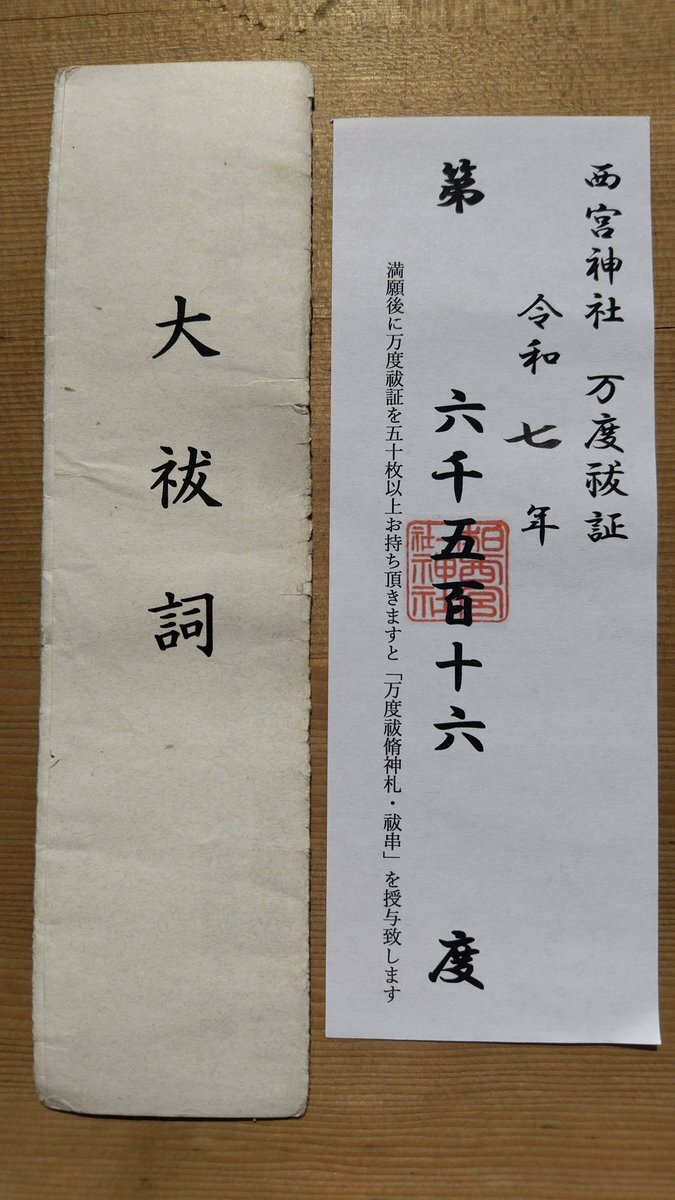 西宮神社 万度祓証
令和七年
第 六千五百十六 度
満願後に万度祓証を五十枚以上お持ち頂きますと「万度祓脩神札・祓串」を授与致します
大祓詞